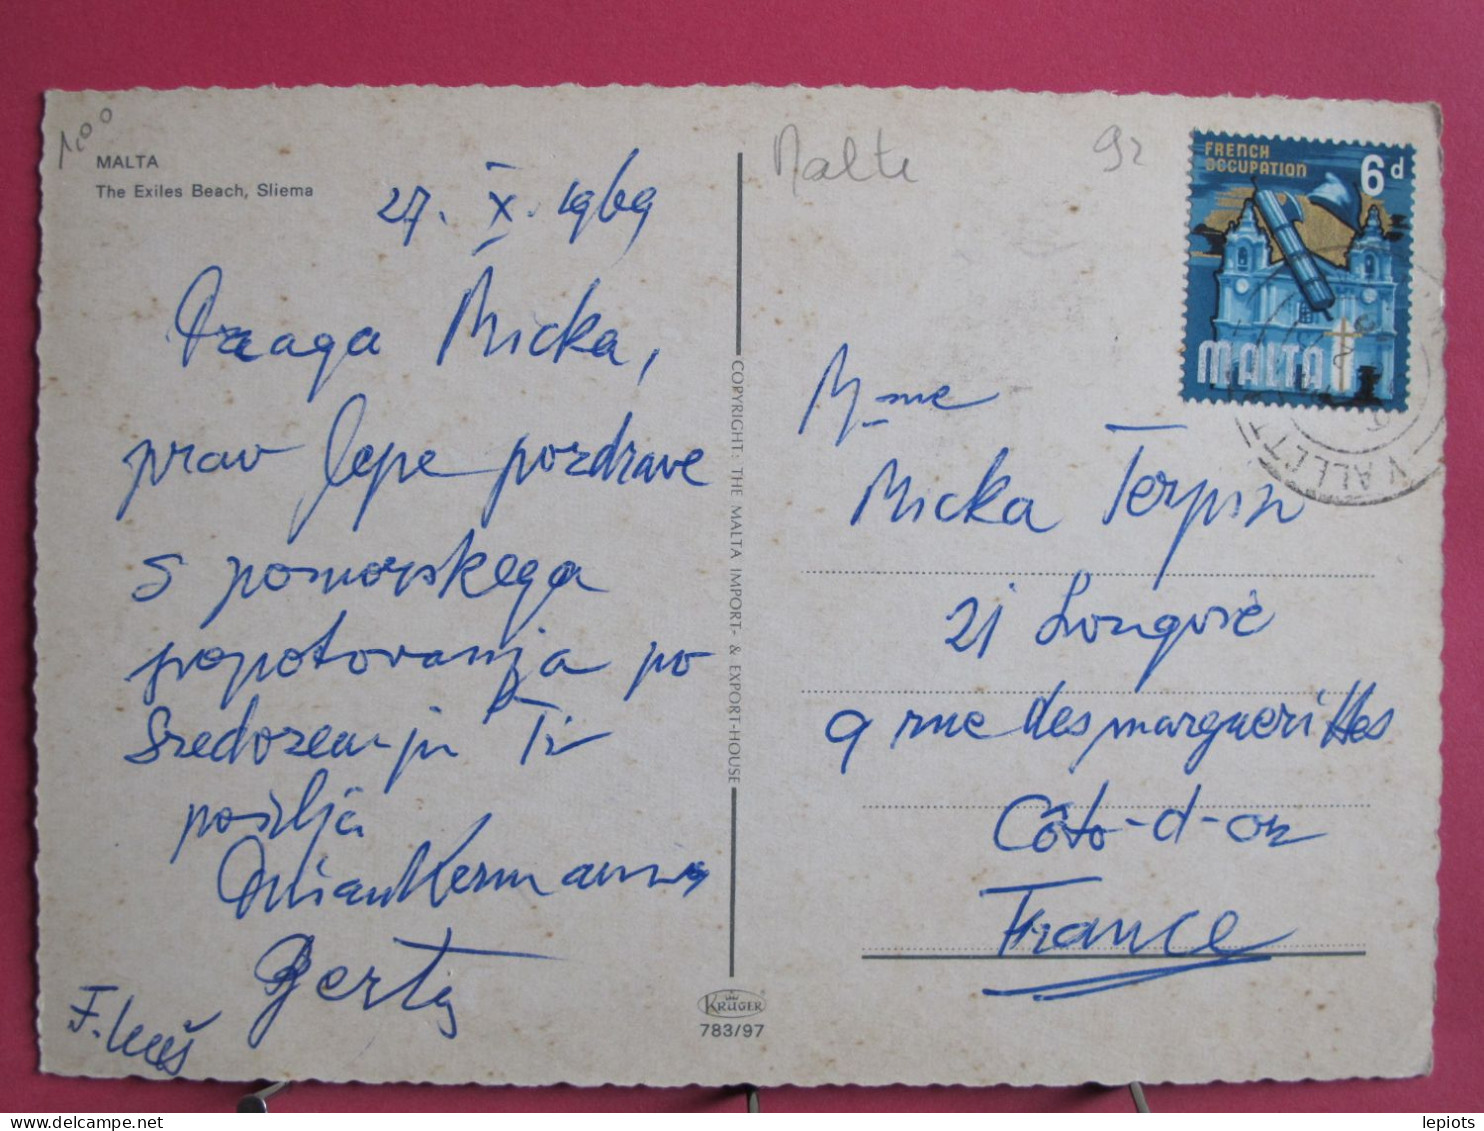 1,00
MALTA
The Exiles Beach, Sliema
27. X. 1969
Draga Micka,
prav lepe pozdrave
s pomorskega
popotovanja po
Sredozemlju Ti
pošilja
Berta
COPYRIGHT: THE MALTA IMPORT- & EXPORT-HOUSE
KRÜGER
783/97
Malte
92
FRENCH
OCCUPATION
6d
MALTA
VALLETT
Mme
Micka Terpin
21 Longvic
9 rue des marguerittes
Côte-d-or
France
lepiots
delcampe.net